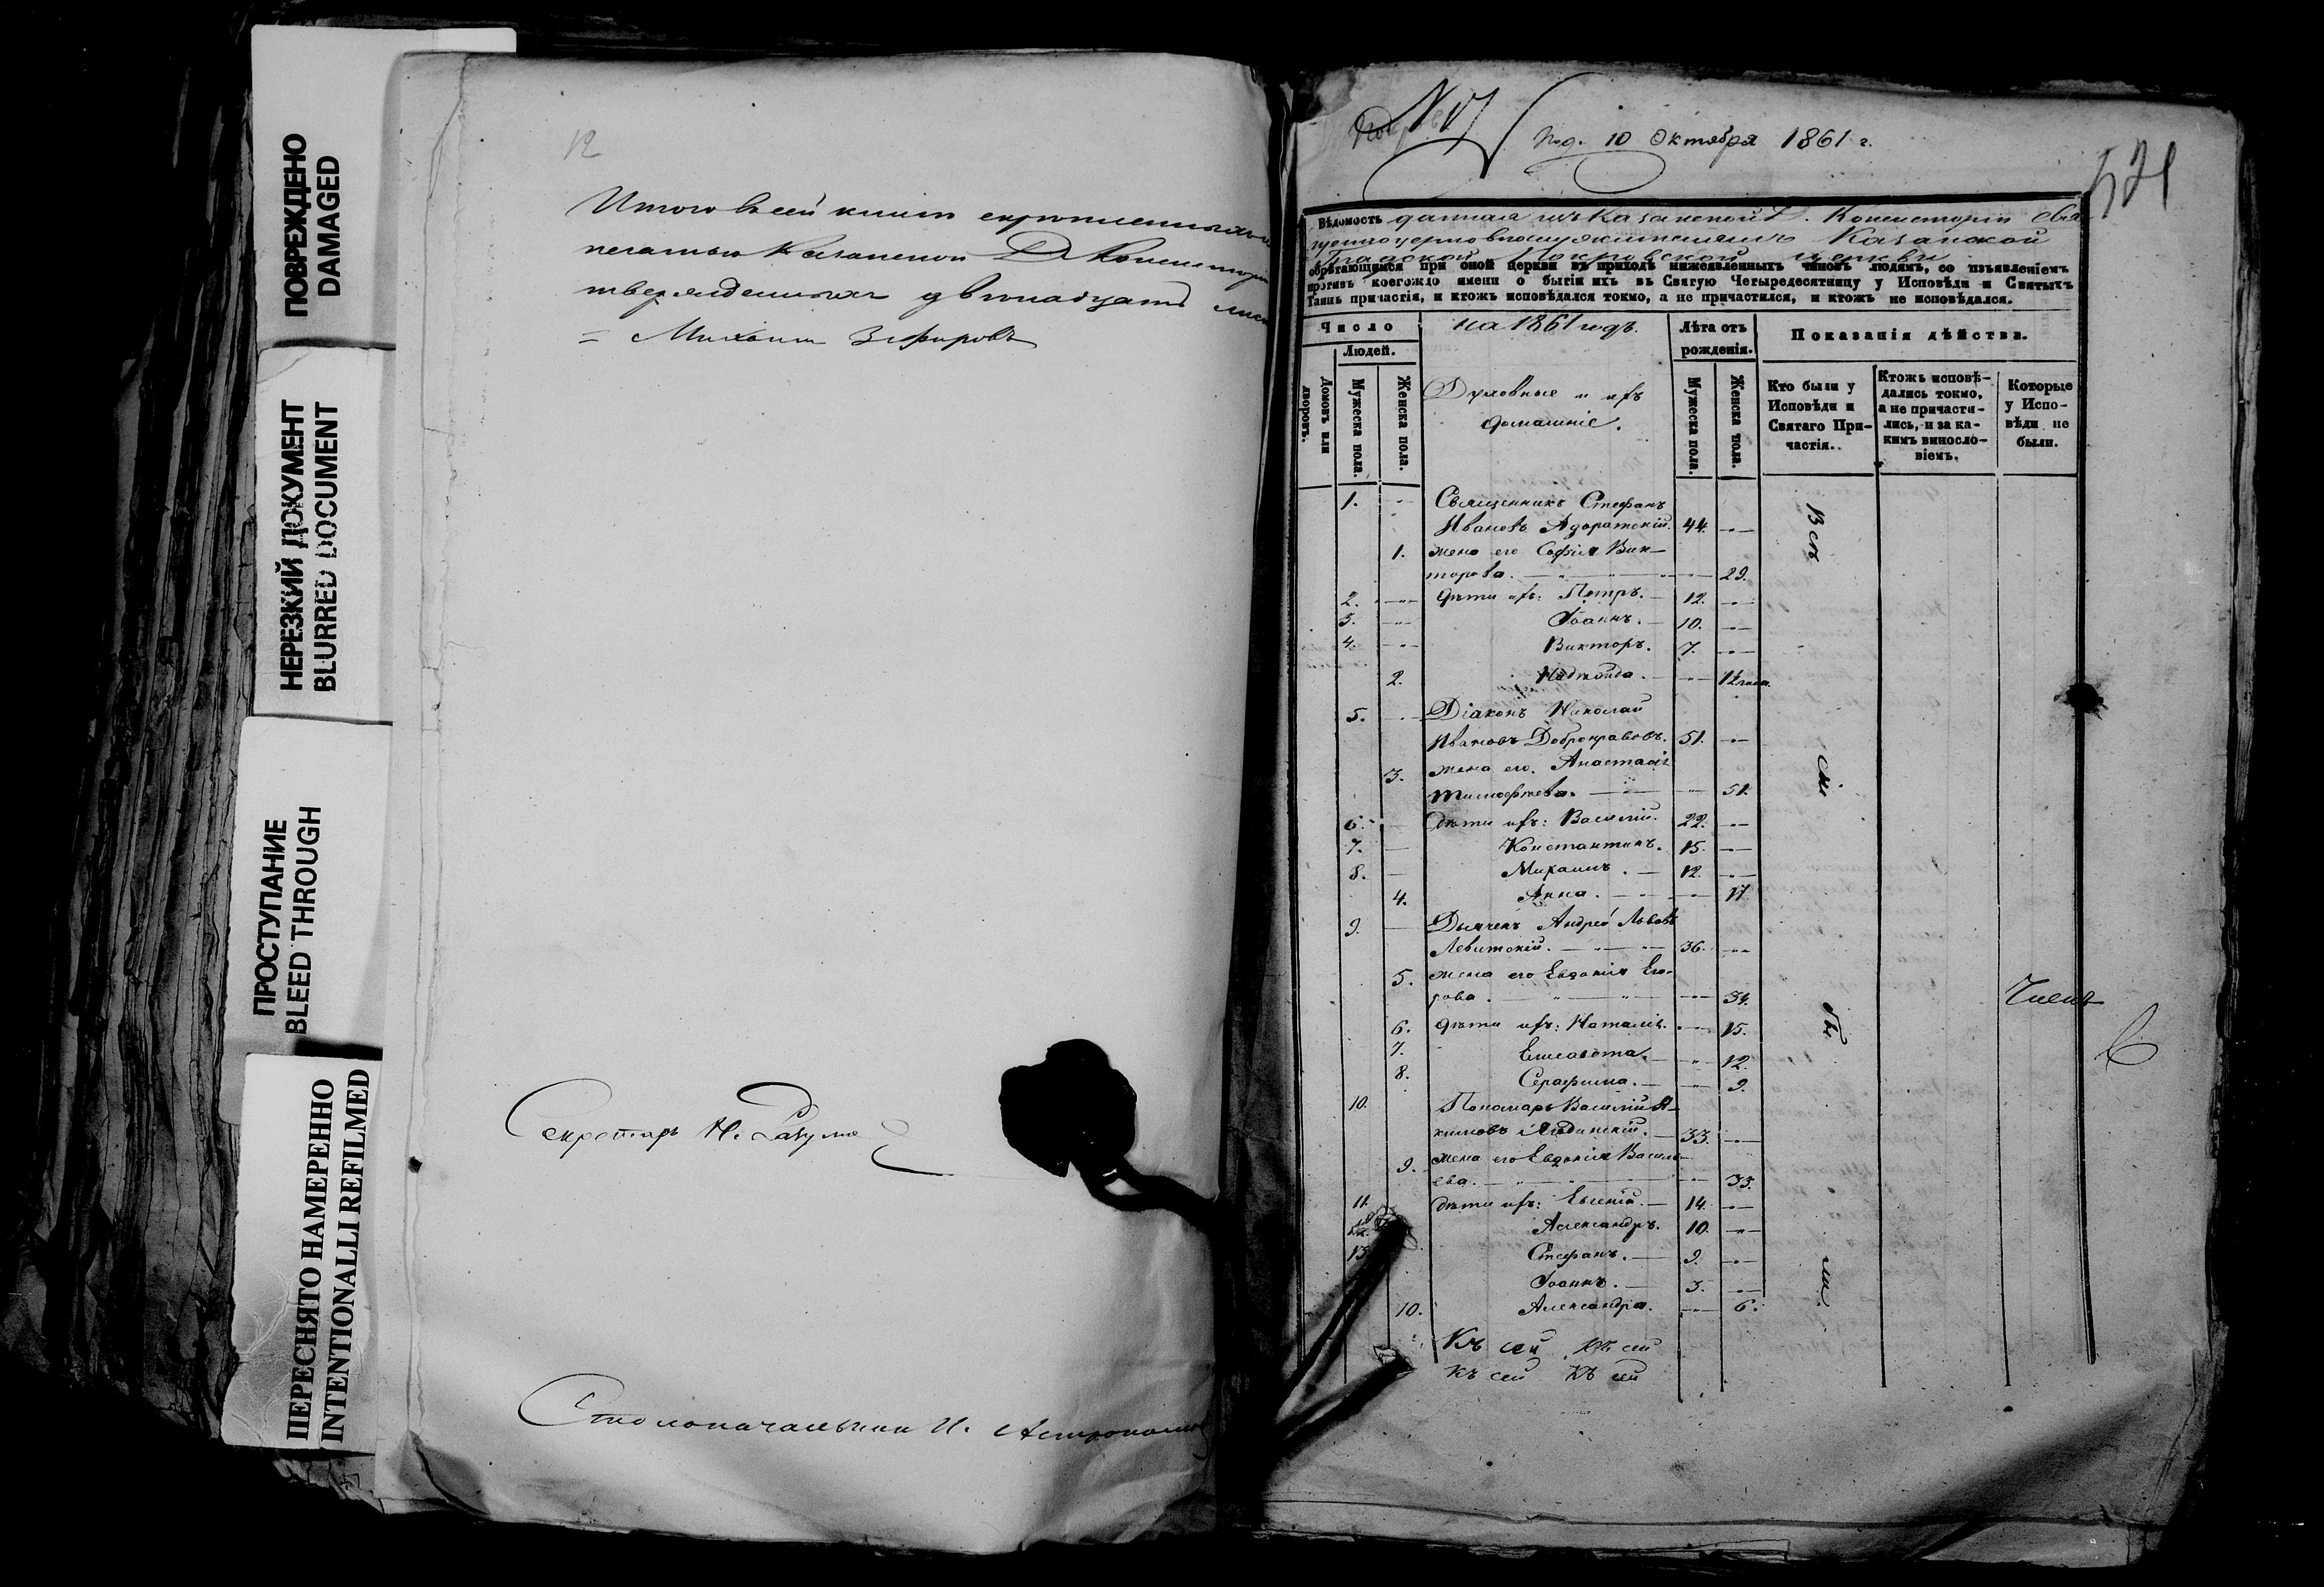 ПОВРЕЖДЕНО
DAMAGED
НЕРЕЗКИЙ ДОКУМЕНТ
BLURRED DOCUMENT
ПРОСТУПАНИЕ
BLEED THROUGH
ПЕРЕСНЯТО НАМЕРЕННО
INTENTIONALLI REFILMED
12
Итого въ сей книге скрепленныхъ
печатью Казанской Д. Консистории
твержденныхъ двенадцать
= Михаилъ Зефировъ
Секретарь Н.
Столоначальник И.
№ 17
под. 10 Октября 1861 г.
521
Вѣдомость данная изъ Казанской Д. Консисторіи Свя
щенноцерковнослужителямъ Казанской
Градской Покровской церкви
обрѣтающимся при оной церкви въ приходѣ нижеявленныхъ чиновъ людямъ, со изъявленіемъ
противъ коегождо имени о бытіи ихъ въ Святую Четыредесятницу у Исповѣди и Святыхъ
Таинъ причастія, и ктожъ исповѣдался токмо, а не причастился, и ктожъ не исповѣдался.
Число
на 1861 годъ.
Лѣта отъ рожденія.
Показанія дѣйства.
Людей.
Домовъ или дворовъ.
Мужеска пола.
Женска пола.
Духовные и ихъ
домашніе.
Мужеска пола.
Женска пола.
Кто были у Исповѣди и Святаго Причастія.
Ктожъ исповѣ-
дались токмо,
а не причасти-
лись, и за ка-
кимъ виносло-
віемъ.
Которые
у Испо-
вѣди не
были.
1. Священникъ Стефанъ
Ивановъ Адоратскій. 44.
1. жена его Софія Вик-
торова. 29.
2. дѣти ихъ: Петръ. 12.
3. Іоаннъ. 10.
4. Викторъ. 7.
2. Надежда.
5. Діаконъ Николай
Ивановъ Добронравовъ. 51.
3. жена его. Анастасія
Тимофеева. 51.
6. дѣти ихъ: Василій. 22.
7. Константинъ. 15.
8. Михаилъ. 12.
4. Анна. 17.
9. Дьячекъ Андрей Львовъ
Левитскій. 36.
5. жена его Евдокія Его-
рова. 34.
6. дѣти ихъ: Наталія. 15.
7. Елисавета. 12.
8. Серафима. 9.
10. Пономарь Василій Я-
кимовъ 33.
9. жена его Евдокія Василь-
ева. 33.
11. дѣти ихъ: Евгеній. 14.
12. Александръ. 10.
13. Стефанъ. 9.
Іоаннъ. 3.
10. Александра. 6.
Всѣ
сіи
бы
ли.
Членъ
Къ сей Къ сей
Къ сей Къ сей